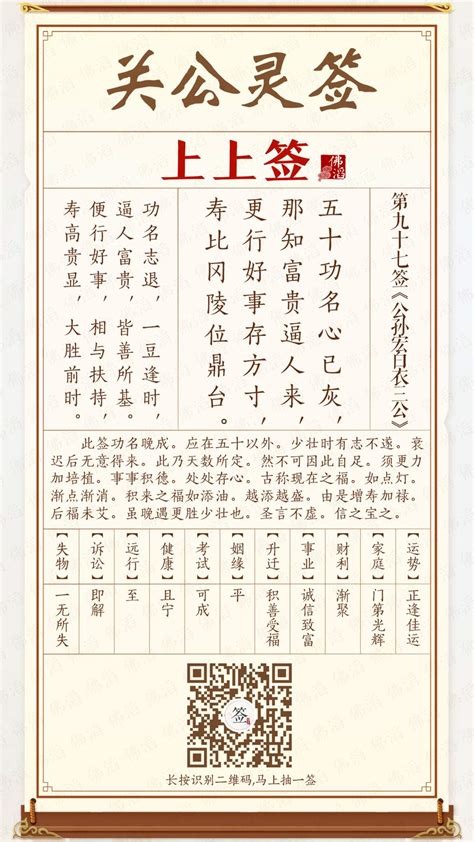 关公灵签
上上签
佛滔
第九十七签《公孙宏白衣三公》
五十功名心已灰，
那知富贵逼人来，
更行好事存方寸，
寿比冈陵位鼎台。
功名志退，一豆逢时，
逼人富贵，皆善所基。
便行好事，相与扶持，
寿高贵显，大胜前时。
此签功名晚成。应在五十以外。少壮时有志不遂。衰
迟后无意得来。此乃天数所定。然不可因此自足。须更力
加培植。事事积德。处处存心。古称现在之福。如点灯。
渐点渐消。积来之福如添油。越添越盛。由是增寿加禄。
后福未艾。虽晚遇更胜少壮也。圣言不虚。信之宝之。
【运势】正逢佳运
【家庭】门第光辉
【财利】渐聚
【事业】诚信致富
【升迁】积善受福
【姻缘】平
【考试】可成
【健康】且宁
【远行】至
【诉讼】即解
【失物】一无所失
签
长按识别二维码,马上抽一签